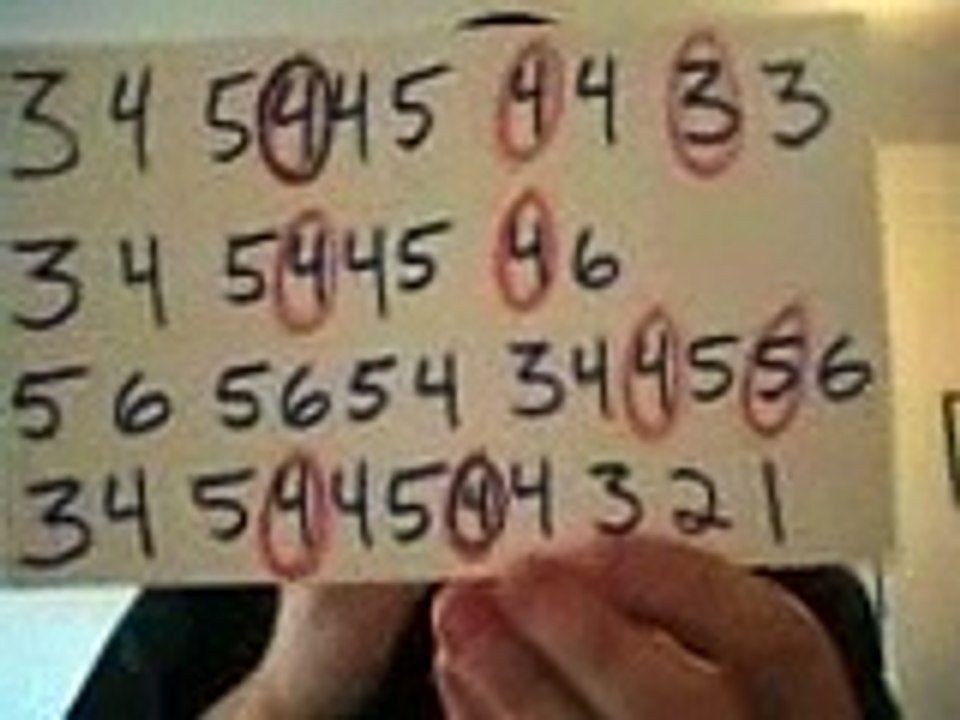 3 4 5445 44 33
3 4 5445 46
5 6 5654 344556
34 544544 3 2 1